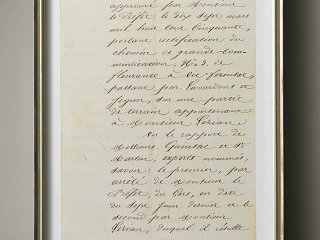 approuvé par Monsieur
le Préfet le dix Sept mars
mil huit cent Cinquante,
portant rectification du
chemin de grande com-
munication, No 3, de
fleurance à Vic-fezensac,
passant par Lavardens et
Jegun, sur une partie
de terrain appartenant
à Monsieur
Vu le rapport de
Messieurs et St
Martin, experts nommés,
savoir: le premier, par
arrêté de Monsieur le
Préfet du Gers, en date
du Sept juin dernier et le
second par Monsieur
duquel il résulte